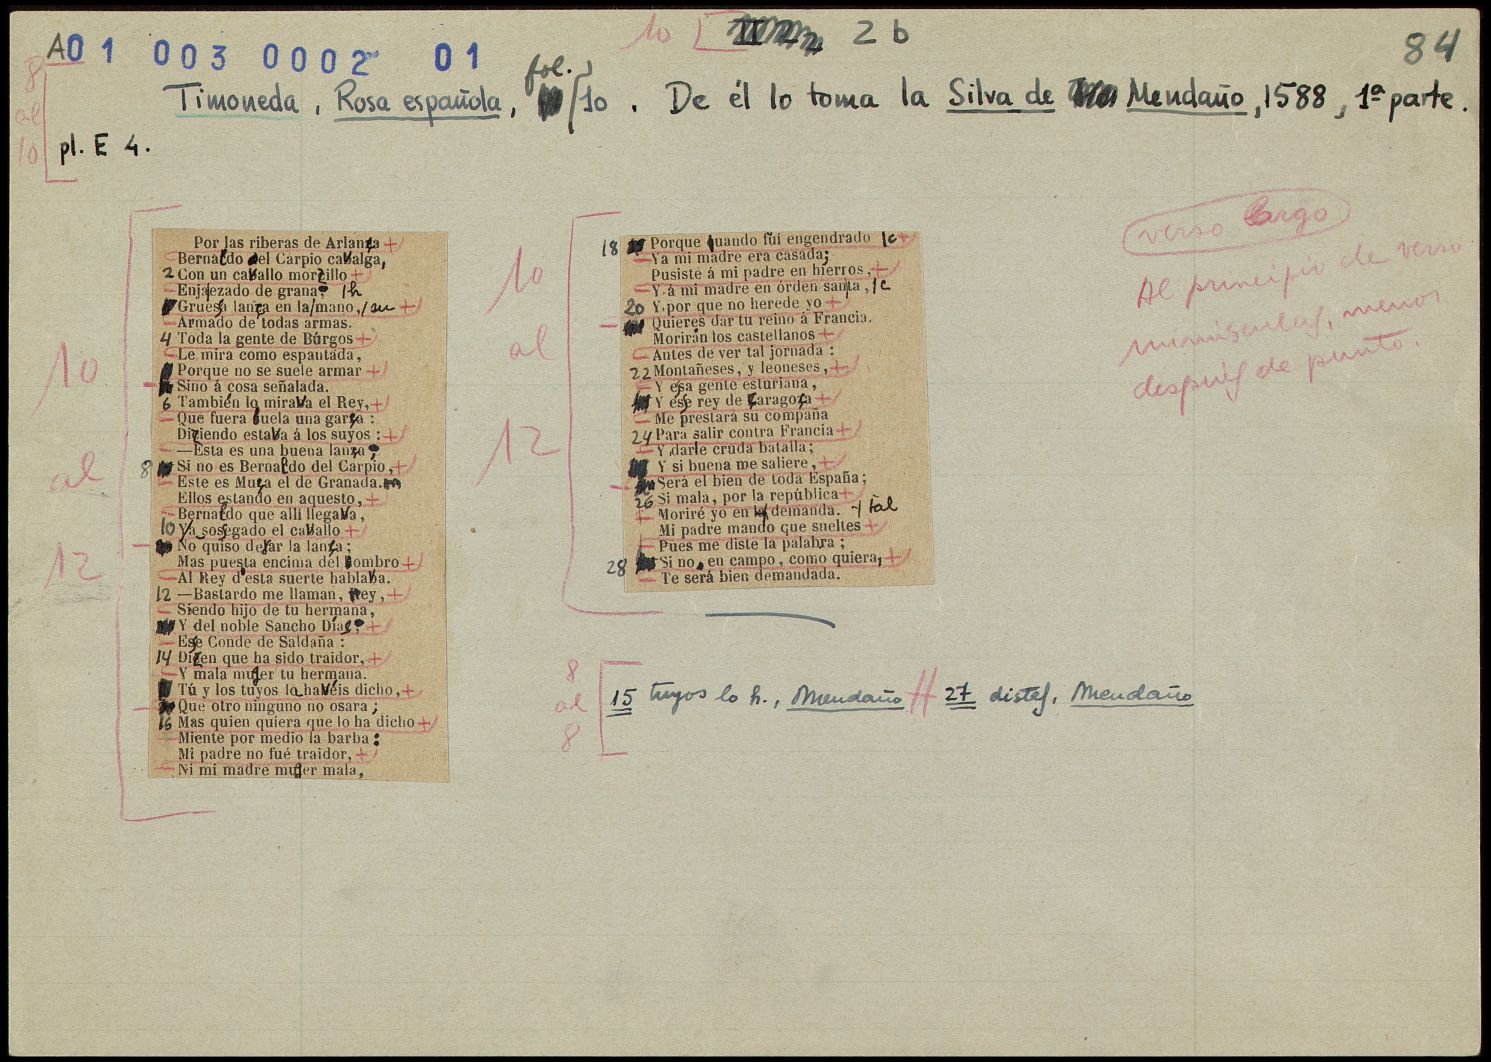 10 2 b
84
A01 003 0002 01
8 al 10
fol.
Timoneda, Rosa española, 10. De él lo toma la Silva de Mendaño, 1588, 1ª parte.
pl. E 4.
10 al 12
Por las riberas de Arlanza
Bernaldo del Carpio cabalga,
2 Con un caballo morzillo
Enjaezado de grana; 1h
Gruesa lanza en la mano, / su
Armado de todas armas.
4 Toda la gente de Búrgos
Le mira como espantada,
Porque no se suele armar
Sino á cosa señalada.
6 Tambien lo miraba el Rey,
Que fuera buela una garza:
Diziendo estaba á los suyos:
—Esta es una buena lanza:
8 Si no es Bernaldo del Carpio,
Este es Muza el de Granada.
Ellos estando en aquesto,
Bernaldo que allí llegaba,
10 Ya sosegado el caballo
No quiso dexar la lanza;
Mas puesta encima del hombro
Al Rey d'esta suerte hablaba.
12 —Bastardo me llaman, Rey,
Siendo hijo de tu hermana,
Y del noble Sancho Dias,
Ese Conde de Saldaña:
14 Dizen que ha sido traidor,
Y mala mujer tu hermana.
Tú y los tuyos lo havéis dicho,
Que otro ninguno no osara;
16 Mas quien quiera que lo ha dicho
Miente por medio la barba:
Mi padre no fué traidor,
Ni mi madre mujer mala,
10 al 12
18 Porque quando fuí engendrado 1c
Ya mi madre era casada;
Pusiste á mi padre en hierros,
Y á mi madre en órden santa, 1c
20 Y por que no herede yo
Quieres dar tu reino á Francia.
Morirán los castellanos
Antes de ver tal jornada:
22 Montañeses, y leoneses,
Y esa gente esturiana,
Y ese rey de Zaragoza
Me prestará su compaña
24 Para salir contra Francia
Y darle cruda batalla;
Y si buena me saliere,
Será el bien de toda España;
26 Si mala, por la república
Moriré yo en la demanda. tal
Mi padre mando que sueltes
Pues me diste la palabra;
28 Si no, en campo, como quiera,
Te será bien demandada.
verso largo
Al principio de verso
minúsculas, menos
después de punto.
8 al 8
15 tuyos lo h., Mendaño // 27 distes, Mendaño